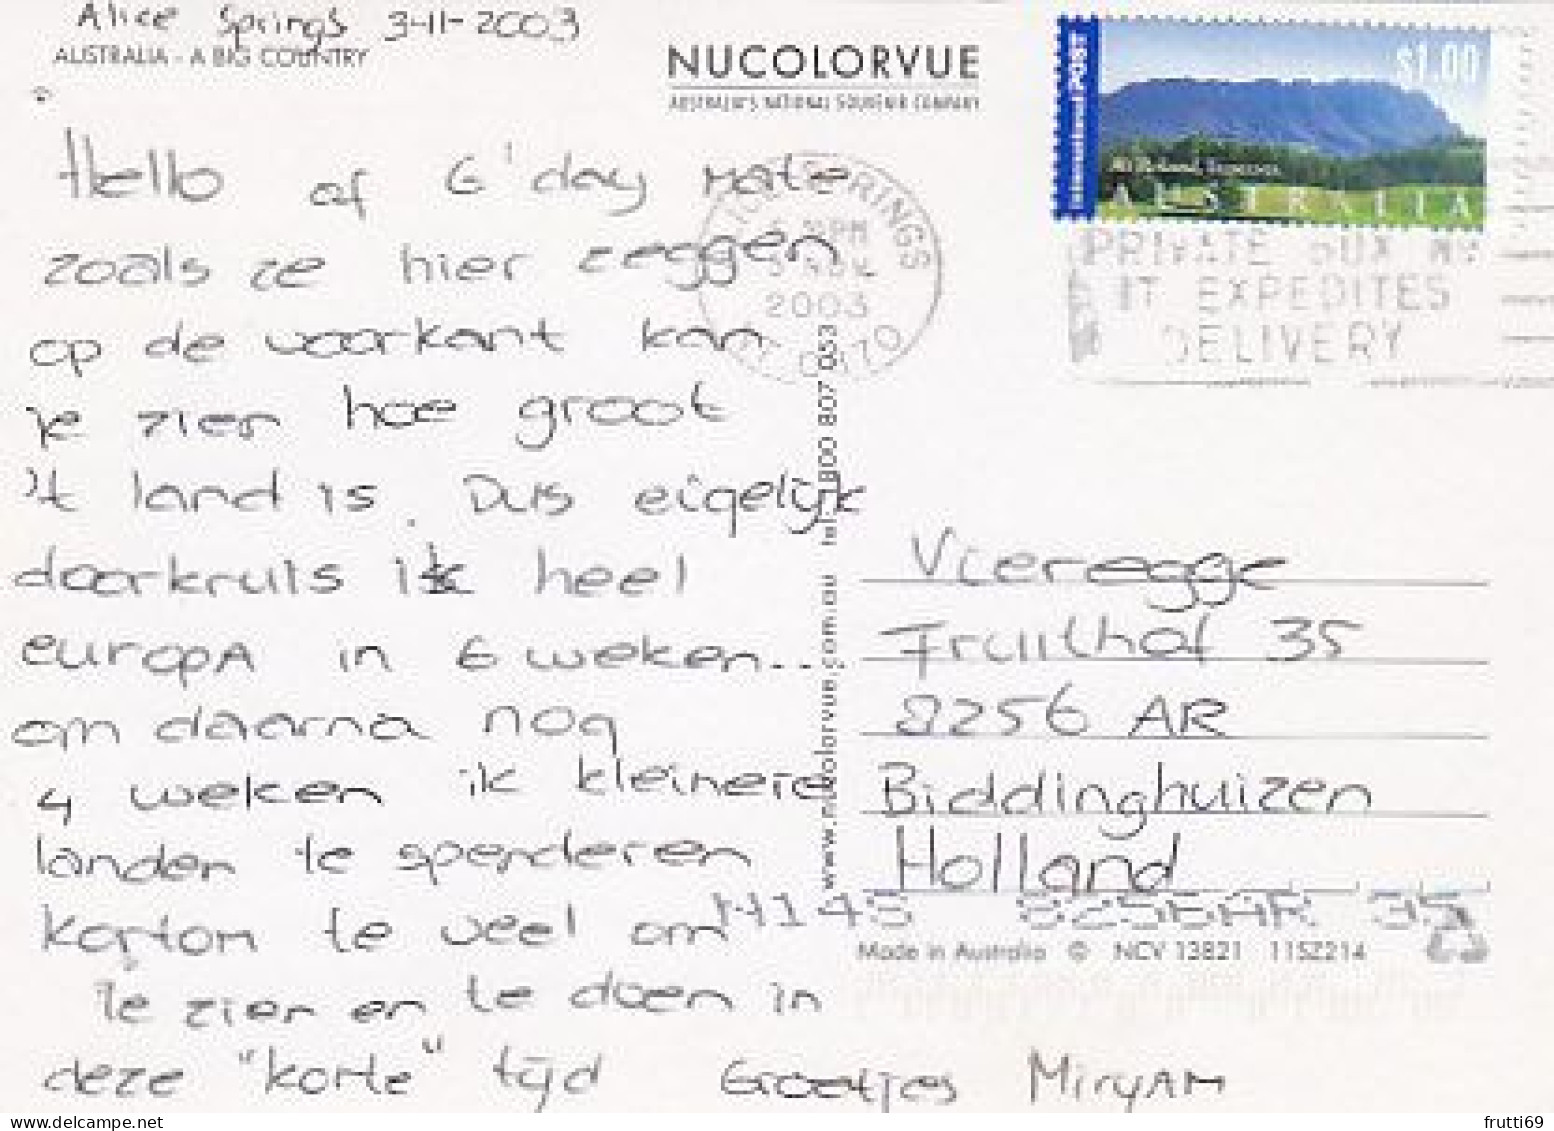 Alice Springs 3-11-2003
AUSTRALIA - A BIG COUNTRY
NUCOLORVUE
AUSTRALIA'S NATIONAL SOUVENIR COMPANY
International POST
$1.00
AUSTRALIA
ALICE SPRINGS
6 PM
3 NOV
2003
NT 0870
PRIVATE BOX No
IT EXPEDITES
DELIVERY
Hello of G'day mate
zoals ze hier zeggen
op de voorkant kan
je zien hoe groot
't land is. Dus eigelijk
doorkruis ik heel
europA in 6 weken...
om daarna nog
4 weken in kleinere
landen te spenderen
kortom te veel om
te zien en te doen in
deze "korte" tijd Groetjes MiryAM
www.nucolorvue.com.au tel: 1800 807 053
Vieregge
Fruithof 35
8256 AR
Biddinghuizen
Holland
N145 8256AR 35
Made in Australia © NCV 13821 115Z214
frutti69